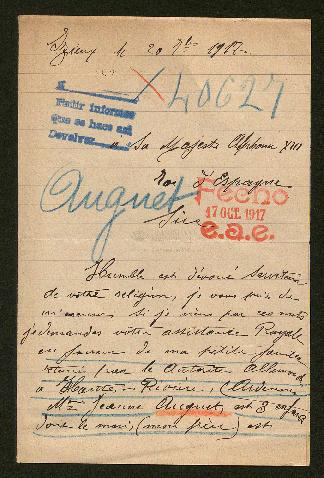 le 20 7bre 1917.
X 40627
Pedir informes
que se hace así
Devolver
Sa Majesté Alphonse XIII
Roi d'Espagne
Auguet
Fecho
17 OCT. 1917
e.a.e.
Sire
Humble et dévoué
de votre religion, je vous prie de
si je viens par ces mots
demander votre assistance Royale
en faveur de ma petite famille
par les Autorités Allemandes
à Rivière, (Ardennes)
Mme Jeanne Auguet, et 3 enfants
dont le mari, (mon frère) est